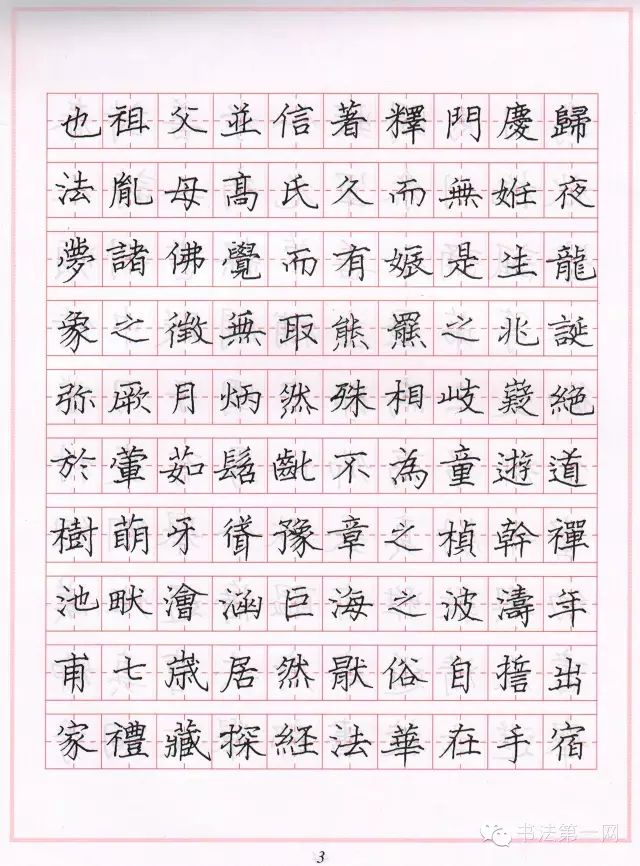 也祖父並信著釋門慶歸
法胤母髙氏久而無姙夜
夢諸佛覺而有娠是生龍
象之徵無取熊羆之兆誕
弥厥月炳然殊相岐嶷絕
於葷茹髫齔不為童遊道
樹萌牙聳豫章之楨幹禪
池畎澮涵巨海之波濤年
甫七嵗居然厭俗自誓出
家禮藏探経法華在手宿
3
书法第一网